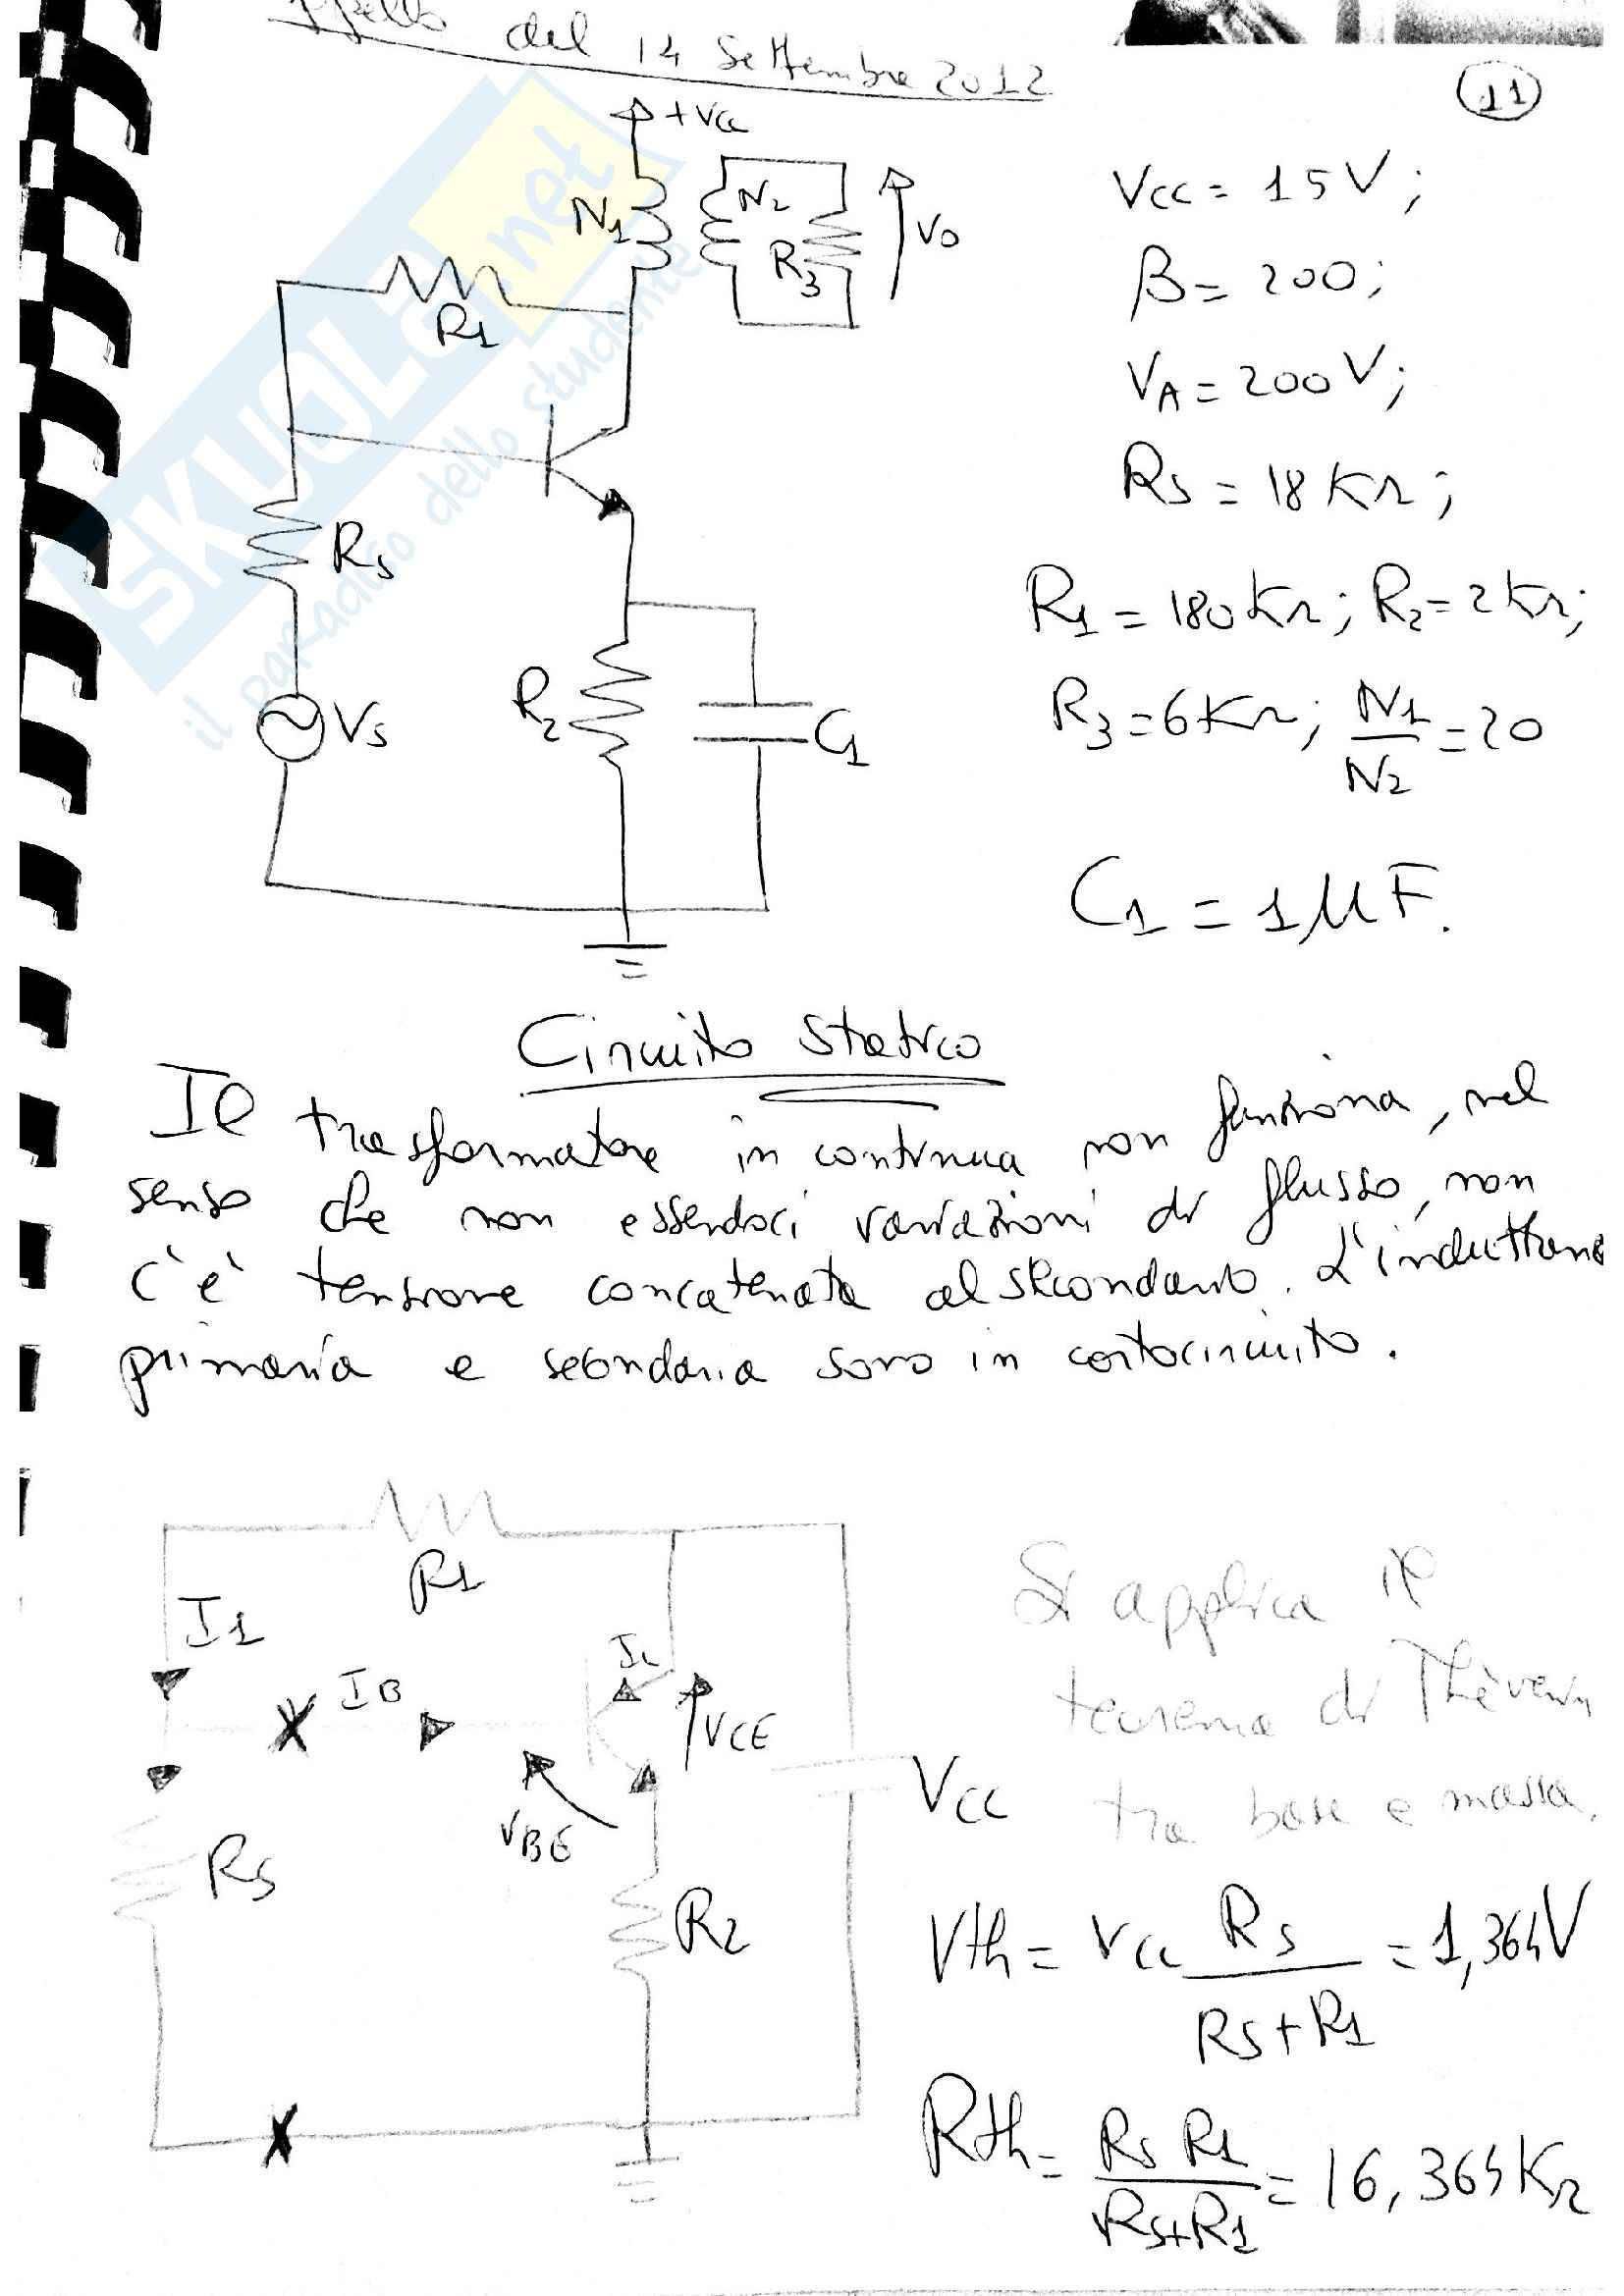 del 14 Settembre 2012
11
+Vcc
N1
N2
R3
Vo
R1
Rs
Vs
R2
C1
SKUOLA.net
il paradiso dello studente
Vcc = 15V;
β = 200;
VA = 200V;
Rs = 18KΩ;
R1 = 180KΩ; R2 = 2KΩ;
R3 = 6KΩ; N1/N2 = 20
C1 = 1μF.
Circuito statico
Il trasformatore in continua non funziona, nel
senso che non essendoci variazioni di flusso, non
c'è tensione concatenata al secondario. L'induttanza
primaria e secondaria sono in cortocircuito.
R1
I1
IB
Ic
VCE
VBE
Rs
R2
Vcc
Si applica il
teorema di Thèvenin
tra base e massa.
Vth = Vcc Rs/(Rs+R1) = 1,364V
Rth = Rs R1/(Rs+R1) = 16,364KΩ